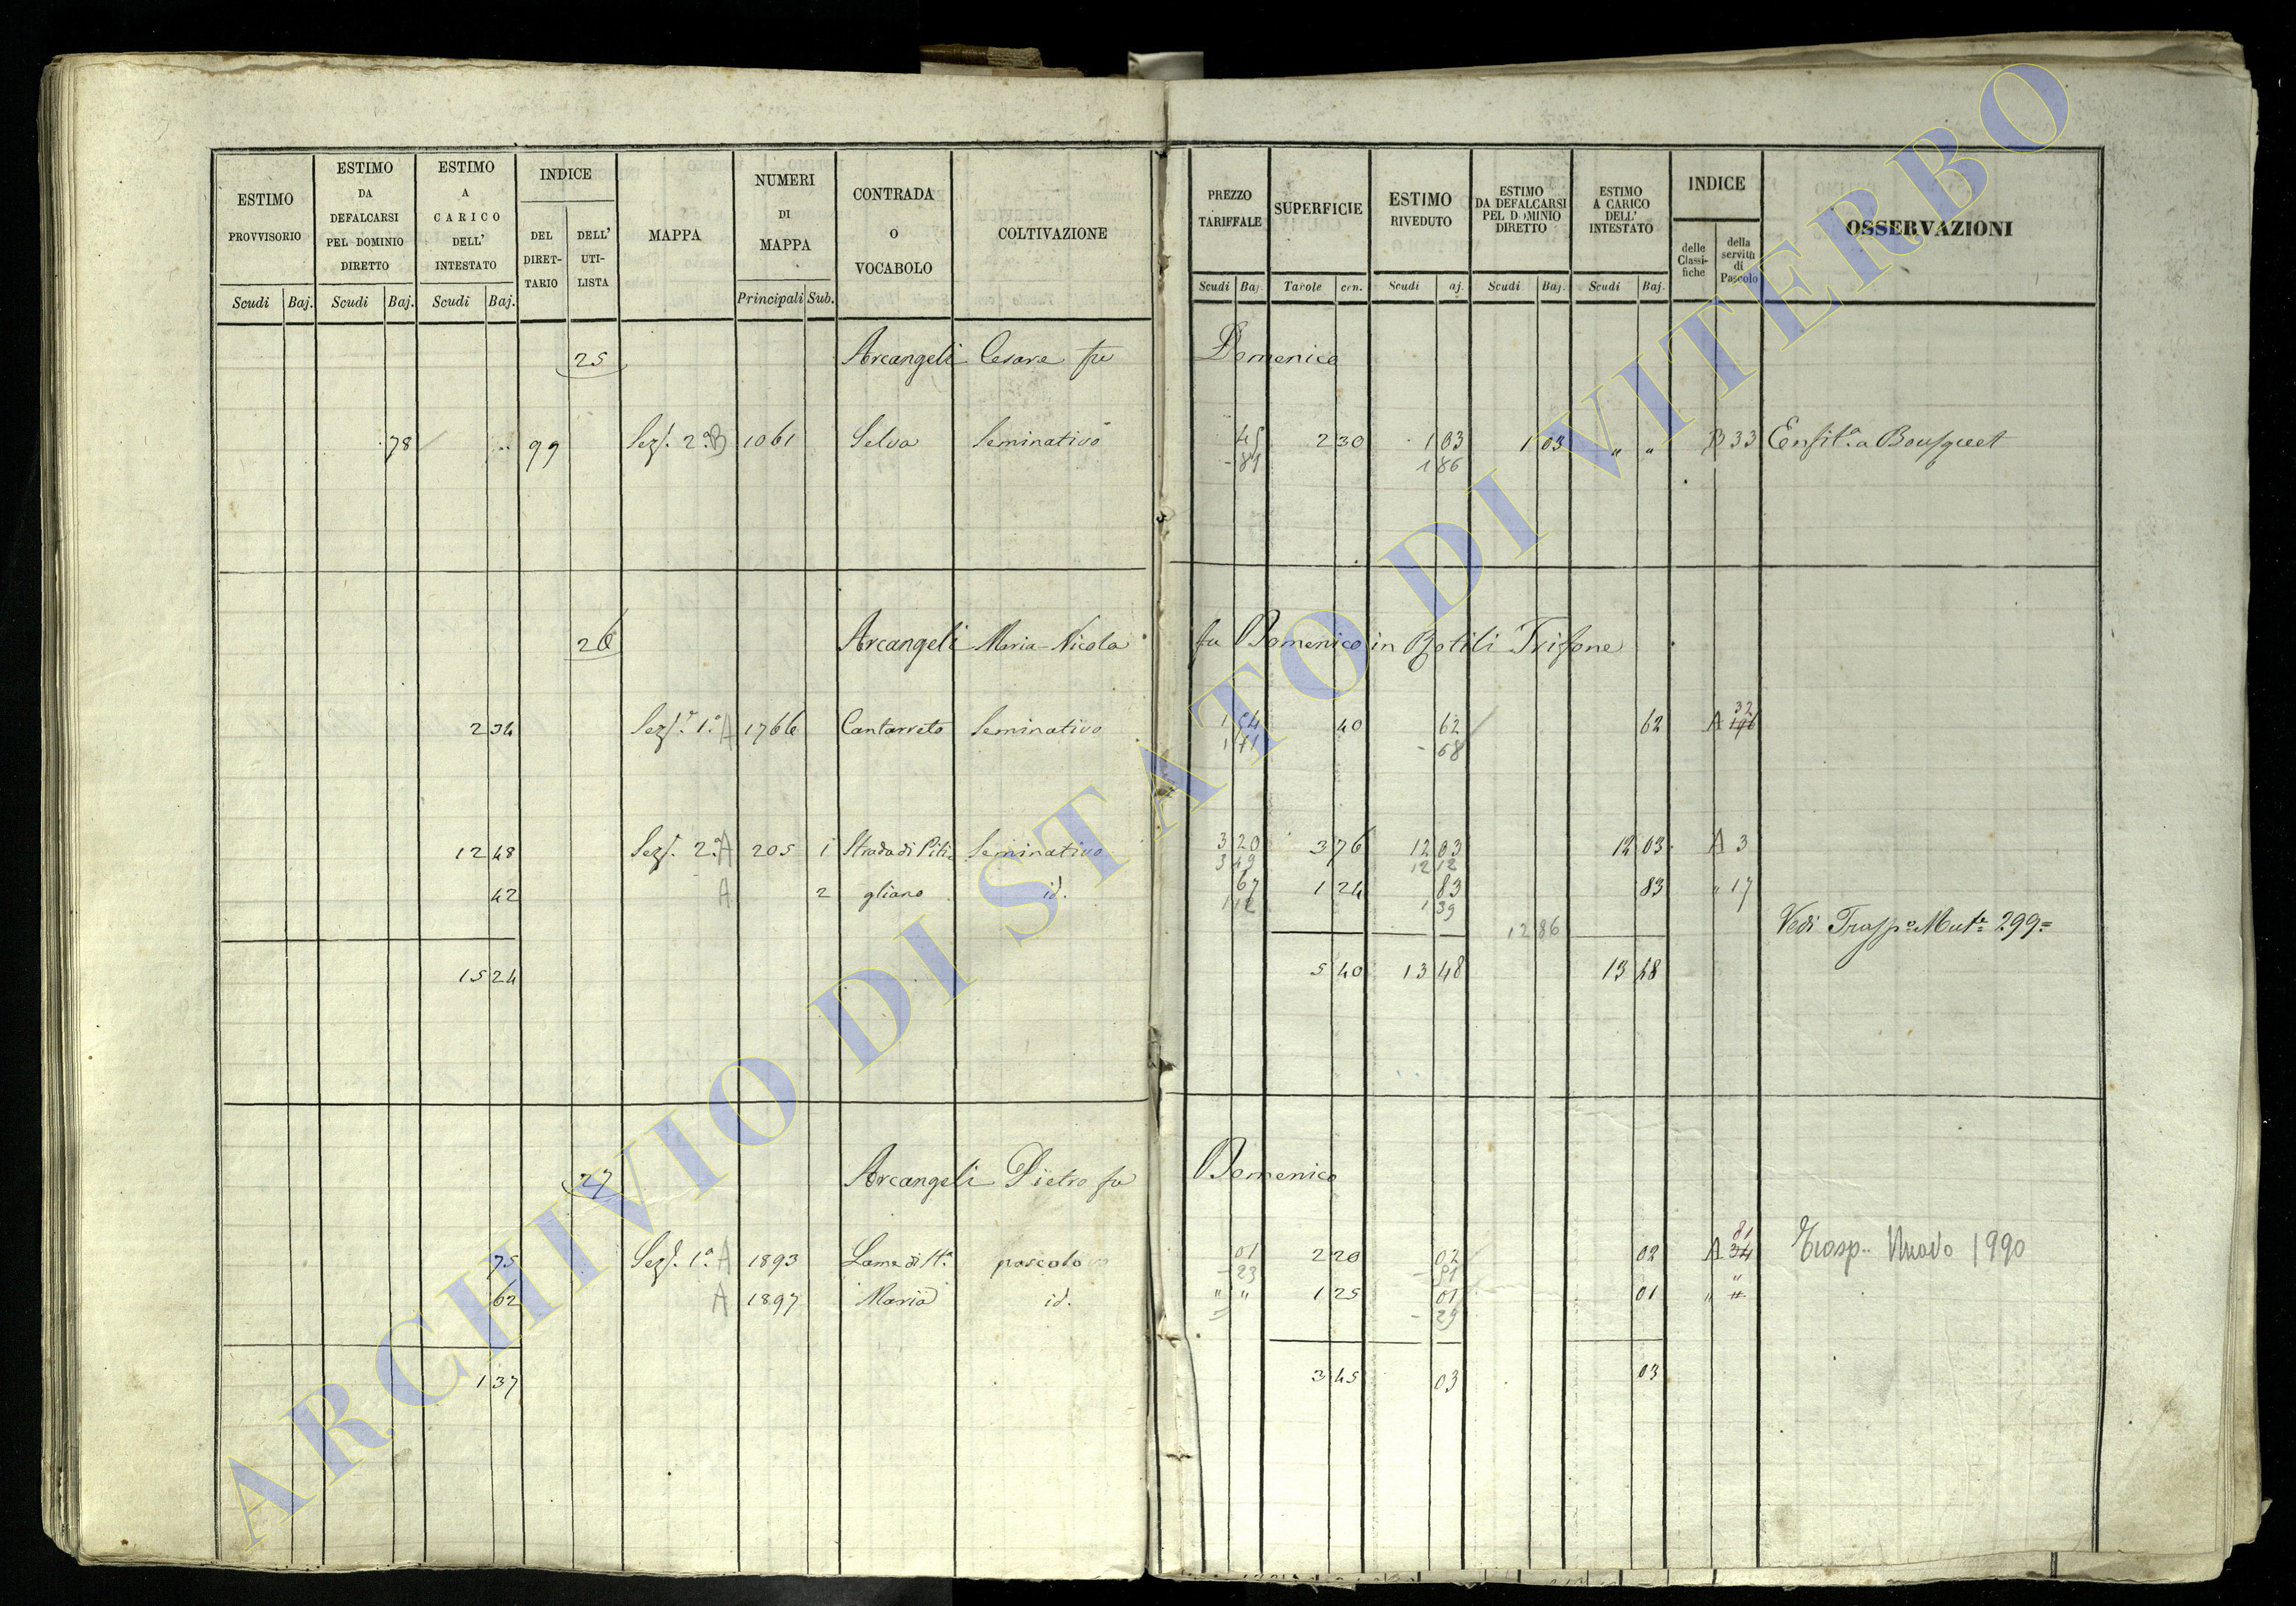 ESTIMO PROVVISORIO Scudi Baj.
ESTIMO DA DEFALCARSI PEL DOMINIO DIRETTO Scudi Baj.
ESTIMO A CARICO DELL' INTESTATO Scudi Baj.
INDICE DEL DIRETTARIO DELL' UTILISTA
MAPPA
NUMERI DI MAPPA Principali Sub.
CONTRADA O VOCABOLO
COLTIVAZIONE
PREZZO TARIFFALE Scudi Baj
SUPERFICIE Tavole cen.
ESTIMO RIVEDUTO Scudi aj.
ESTIMO DA DEFALCARSI PEL DOMINIO DIRETTO Scudi Baj.
ESTIMO A CARICO DELL' INTESTATO Scudi Baj.
INDICE delle Classifiche della servitù di Pascolo
OSSERVAZIONI
25 Arcangeli Cesare fu Domenico
78 99 Sezṡ. 2ª B 1061 Selva Seminativo 45 2 30 1 03 1 03 " " B 33 Enfitª a Bousquet
1 86
26 Arcangeli Maria Nicola fu Domenico in Trifone
2 34 1ª A 1766 Cantarreto Seminativo 40 62 62 A 32
1 71 - 68
12 48 2ª A 205 1 Strada di Piti Seminativo 3 20 3 76 12 03 12 03 A 3
3 49 12 12
42 A 2 gliano id. 67 1 24 83 83 " 17
1 12 1 39
12 86 Vedi Trasp.º Mutᵉ 299=
15 24 5 40 13 48 13 48
27 Arcangeli Pietro fu Domenico
75 1ª A 1893 Lama di Sᵗᵃ pascolo 01 2 20 02 02 A 34 81 Trasp.. Nuovo 1990
- 23
62 A 1897 Maria id. " " 1 25 01 01 " "
- 29
1 37 3 45 03 03
ARCHIVIO DI STATO DI VITERBO